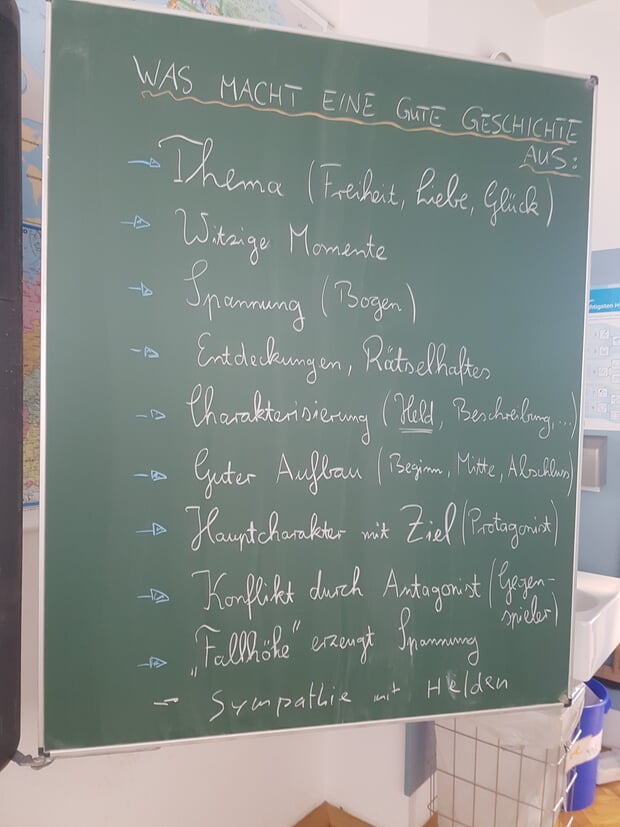 WAS MACHT EINE GUTE GESCHICHTE
AUS:
→ Thema (Freiheit, Liebe, Glück)
→ Witzige Momente
→ Spannung (Bogen)
→ Entdeckungen, Rätselhaftes
→ Charakterisierung (Held, Beschreibung,...)
→ Guter Aufbau (Beginn, Mitte, Abschluss)
→ Hauptcharakter mit Ziel (Protagonist)
→ Konflikt durch Antagonist (Gegen-
spieler)
→ „Fallhöhe" erzeugt Spannung
- Sympathie mit Helden